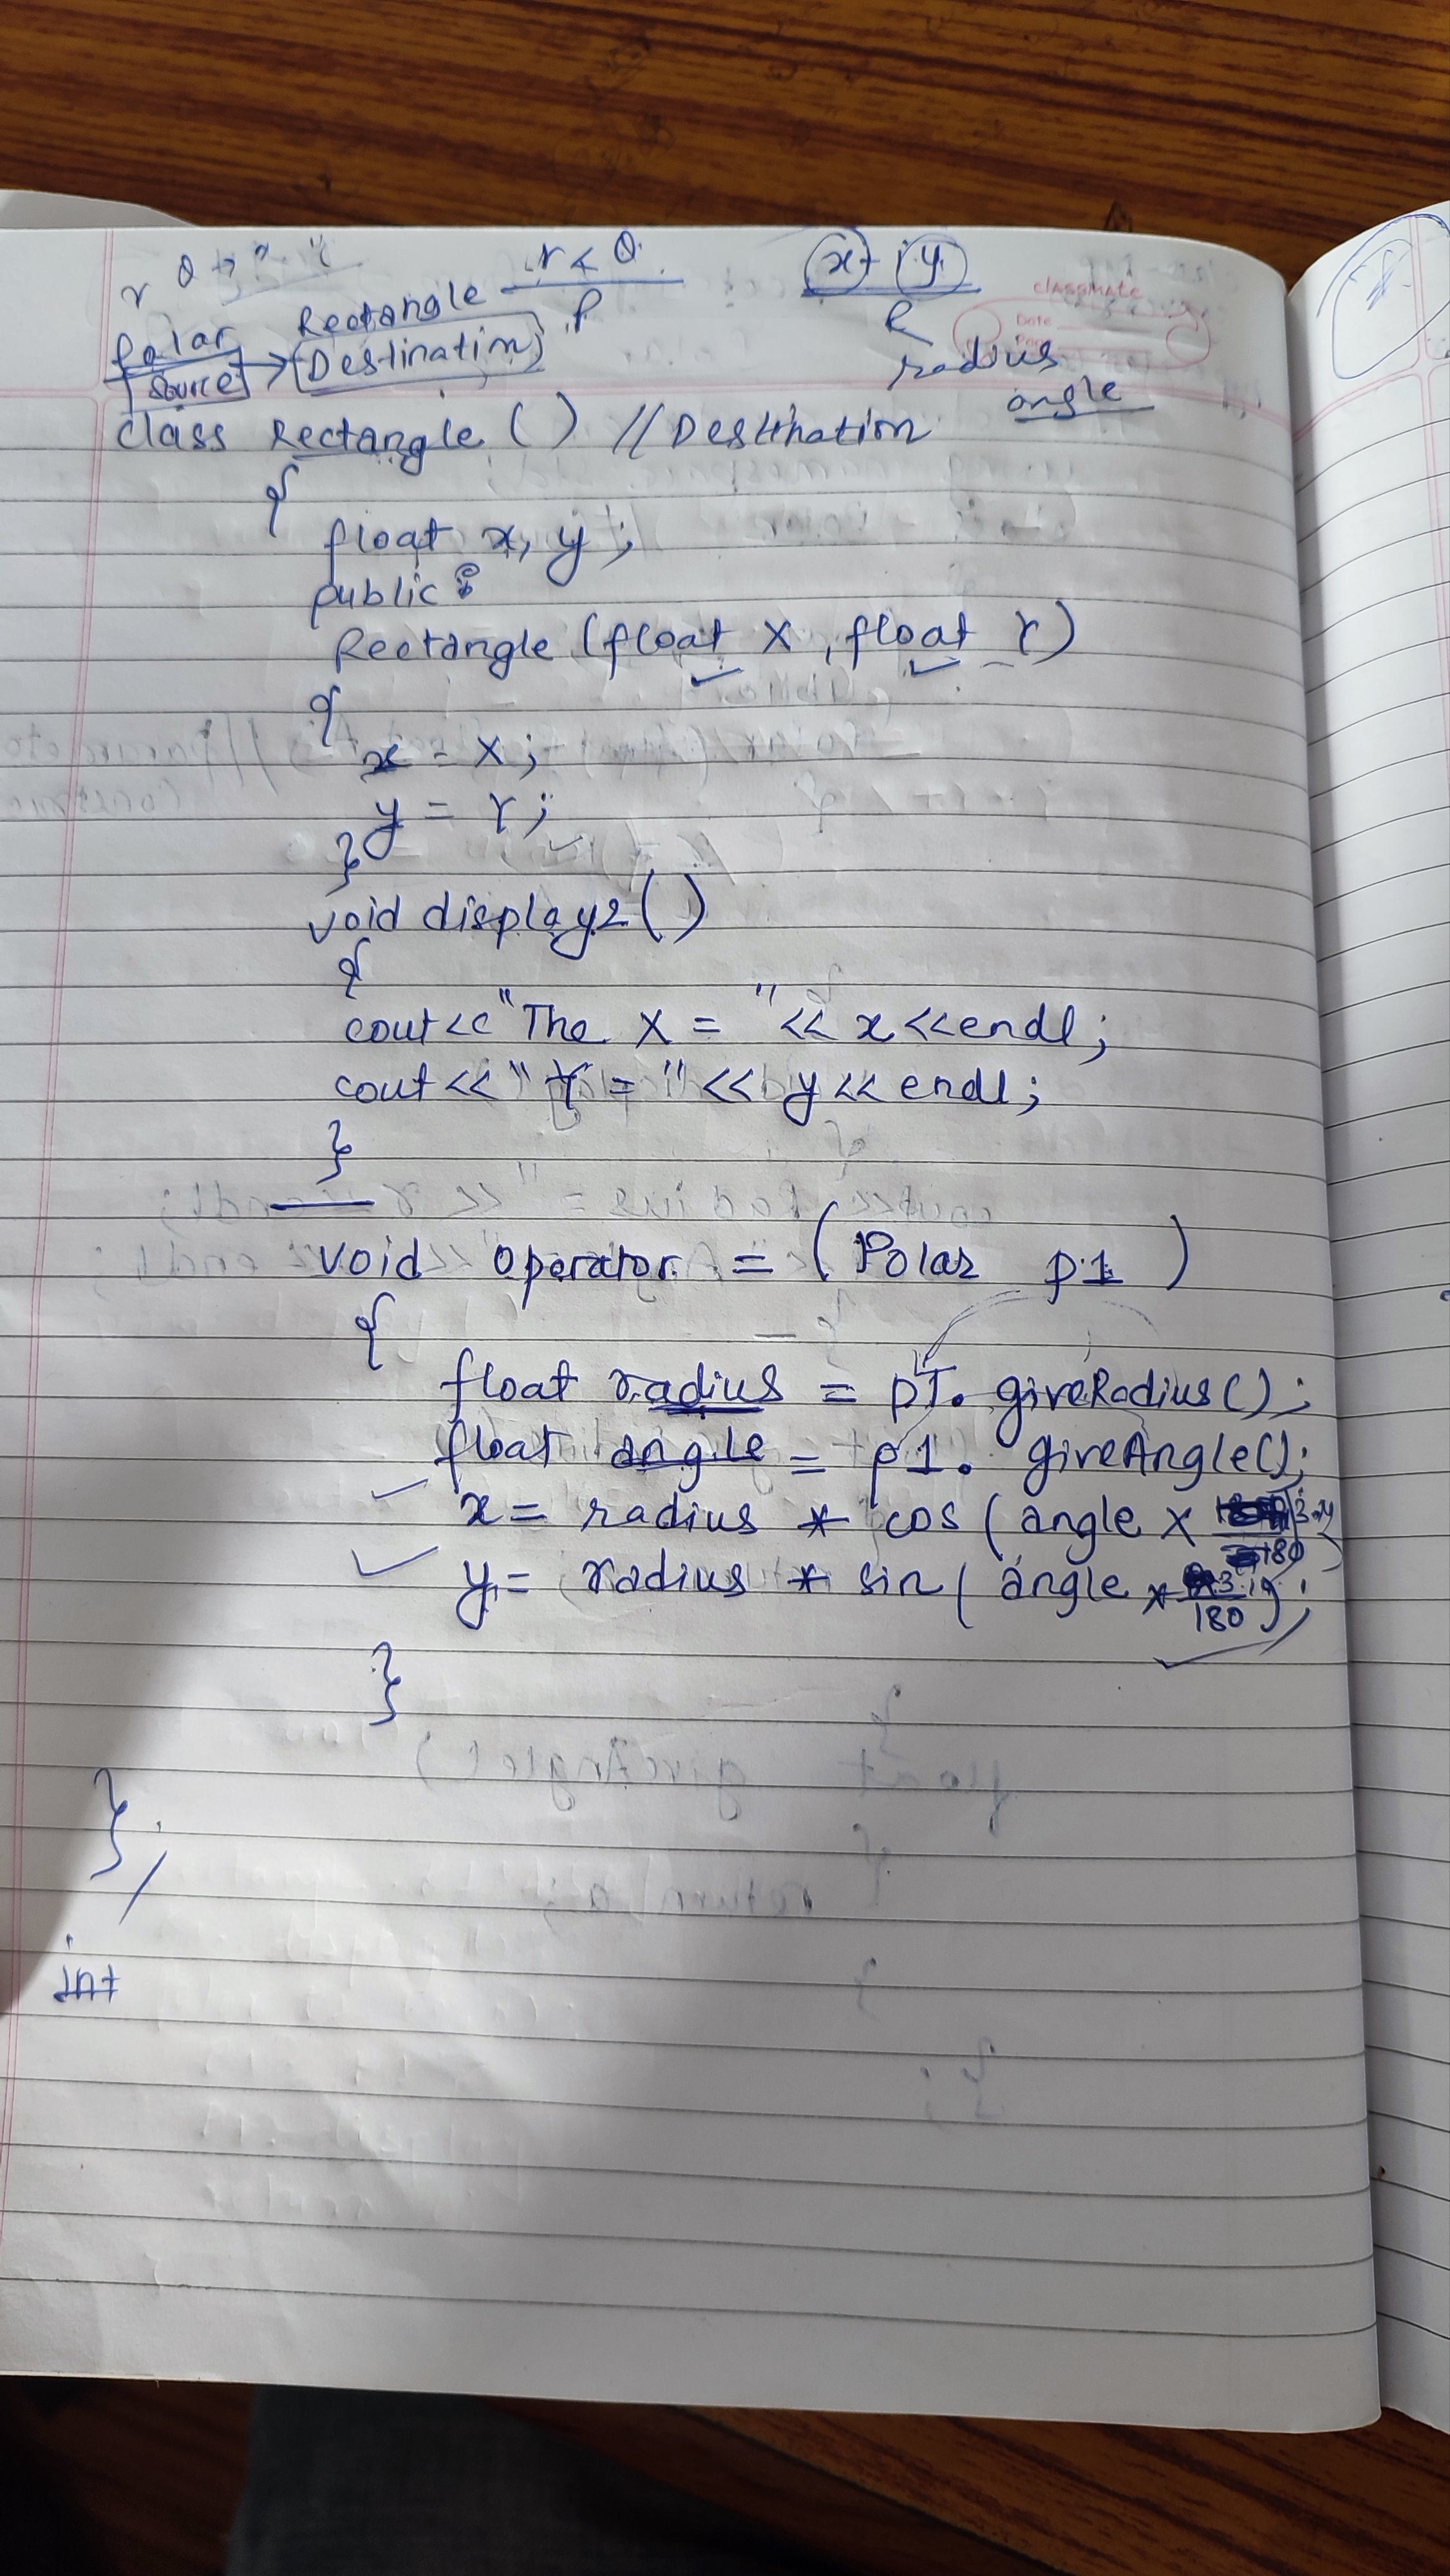 r θ → x
Polar Rectangle r∠θ x+jy
Source → Destination P R
classmate
Date
Page
radius
angle
class Rectangle () // Destination
{
float x, y ;
public :
Rectangle (float X , float Y)
{
x = X ;
y = Y ;
}
void display2 ()
{
cout<<"The X = "<< x<<endl;
cout<<" Y = "<< y<< endl;
}
void operator = (Polar p1 )
{
float radius = p1. giveRadius();
float angle = p1. giveAngle();
x = radius * cos ( angle X 3.14
180 )
y = radius * sin ( angle * 3.14
180 ) ;
}
} ;
int